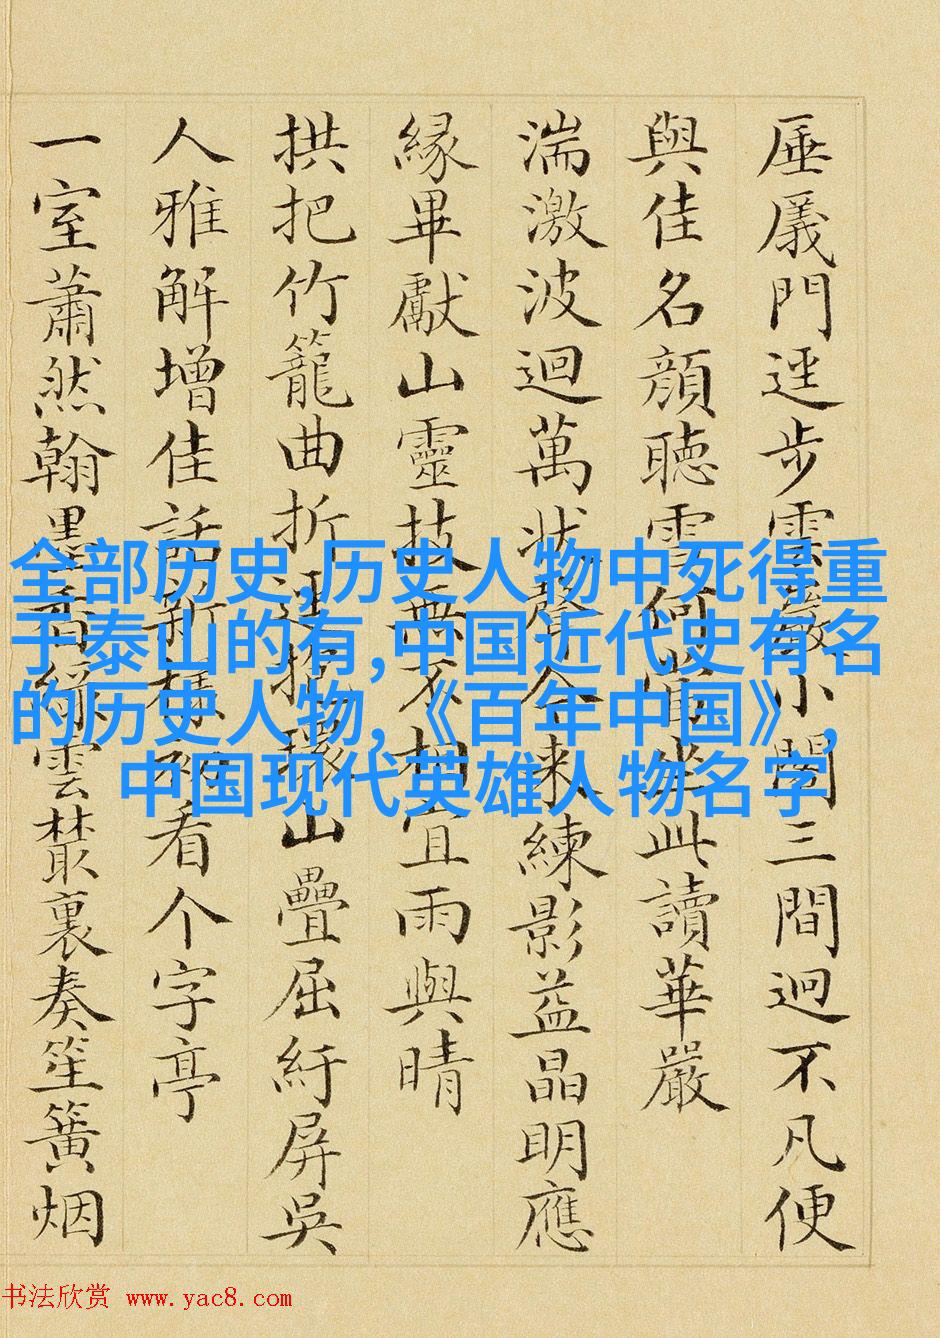 全部历史,历史人物中死得重
于泰山的有,中国近代史有名
的历史人物,《百年中国》,
中国现代英雄人物名字
厜㕒門逕步雲巖小閣三間迥不凡便
與佳名顏聽雪何當坐此讀華嚴
湍激波迴萬狀聲合來練影益晶明應
緣畢獻山靈技無不相宜雨與晴
拱把竹籠曲折山疊屈紆屏吳
人雅解增佳話新樣初看个字亭
一室蕭然翰墨香綠雲叢裏奏笙簧烟
书法欣赏 www.yac8.com